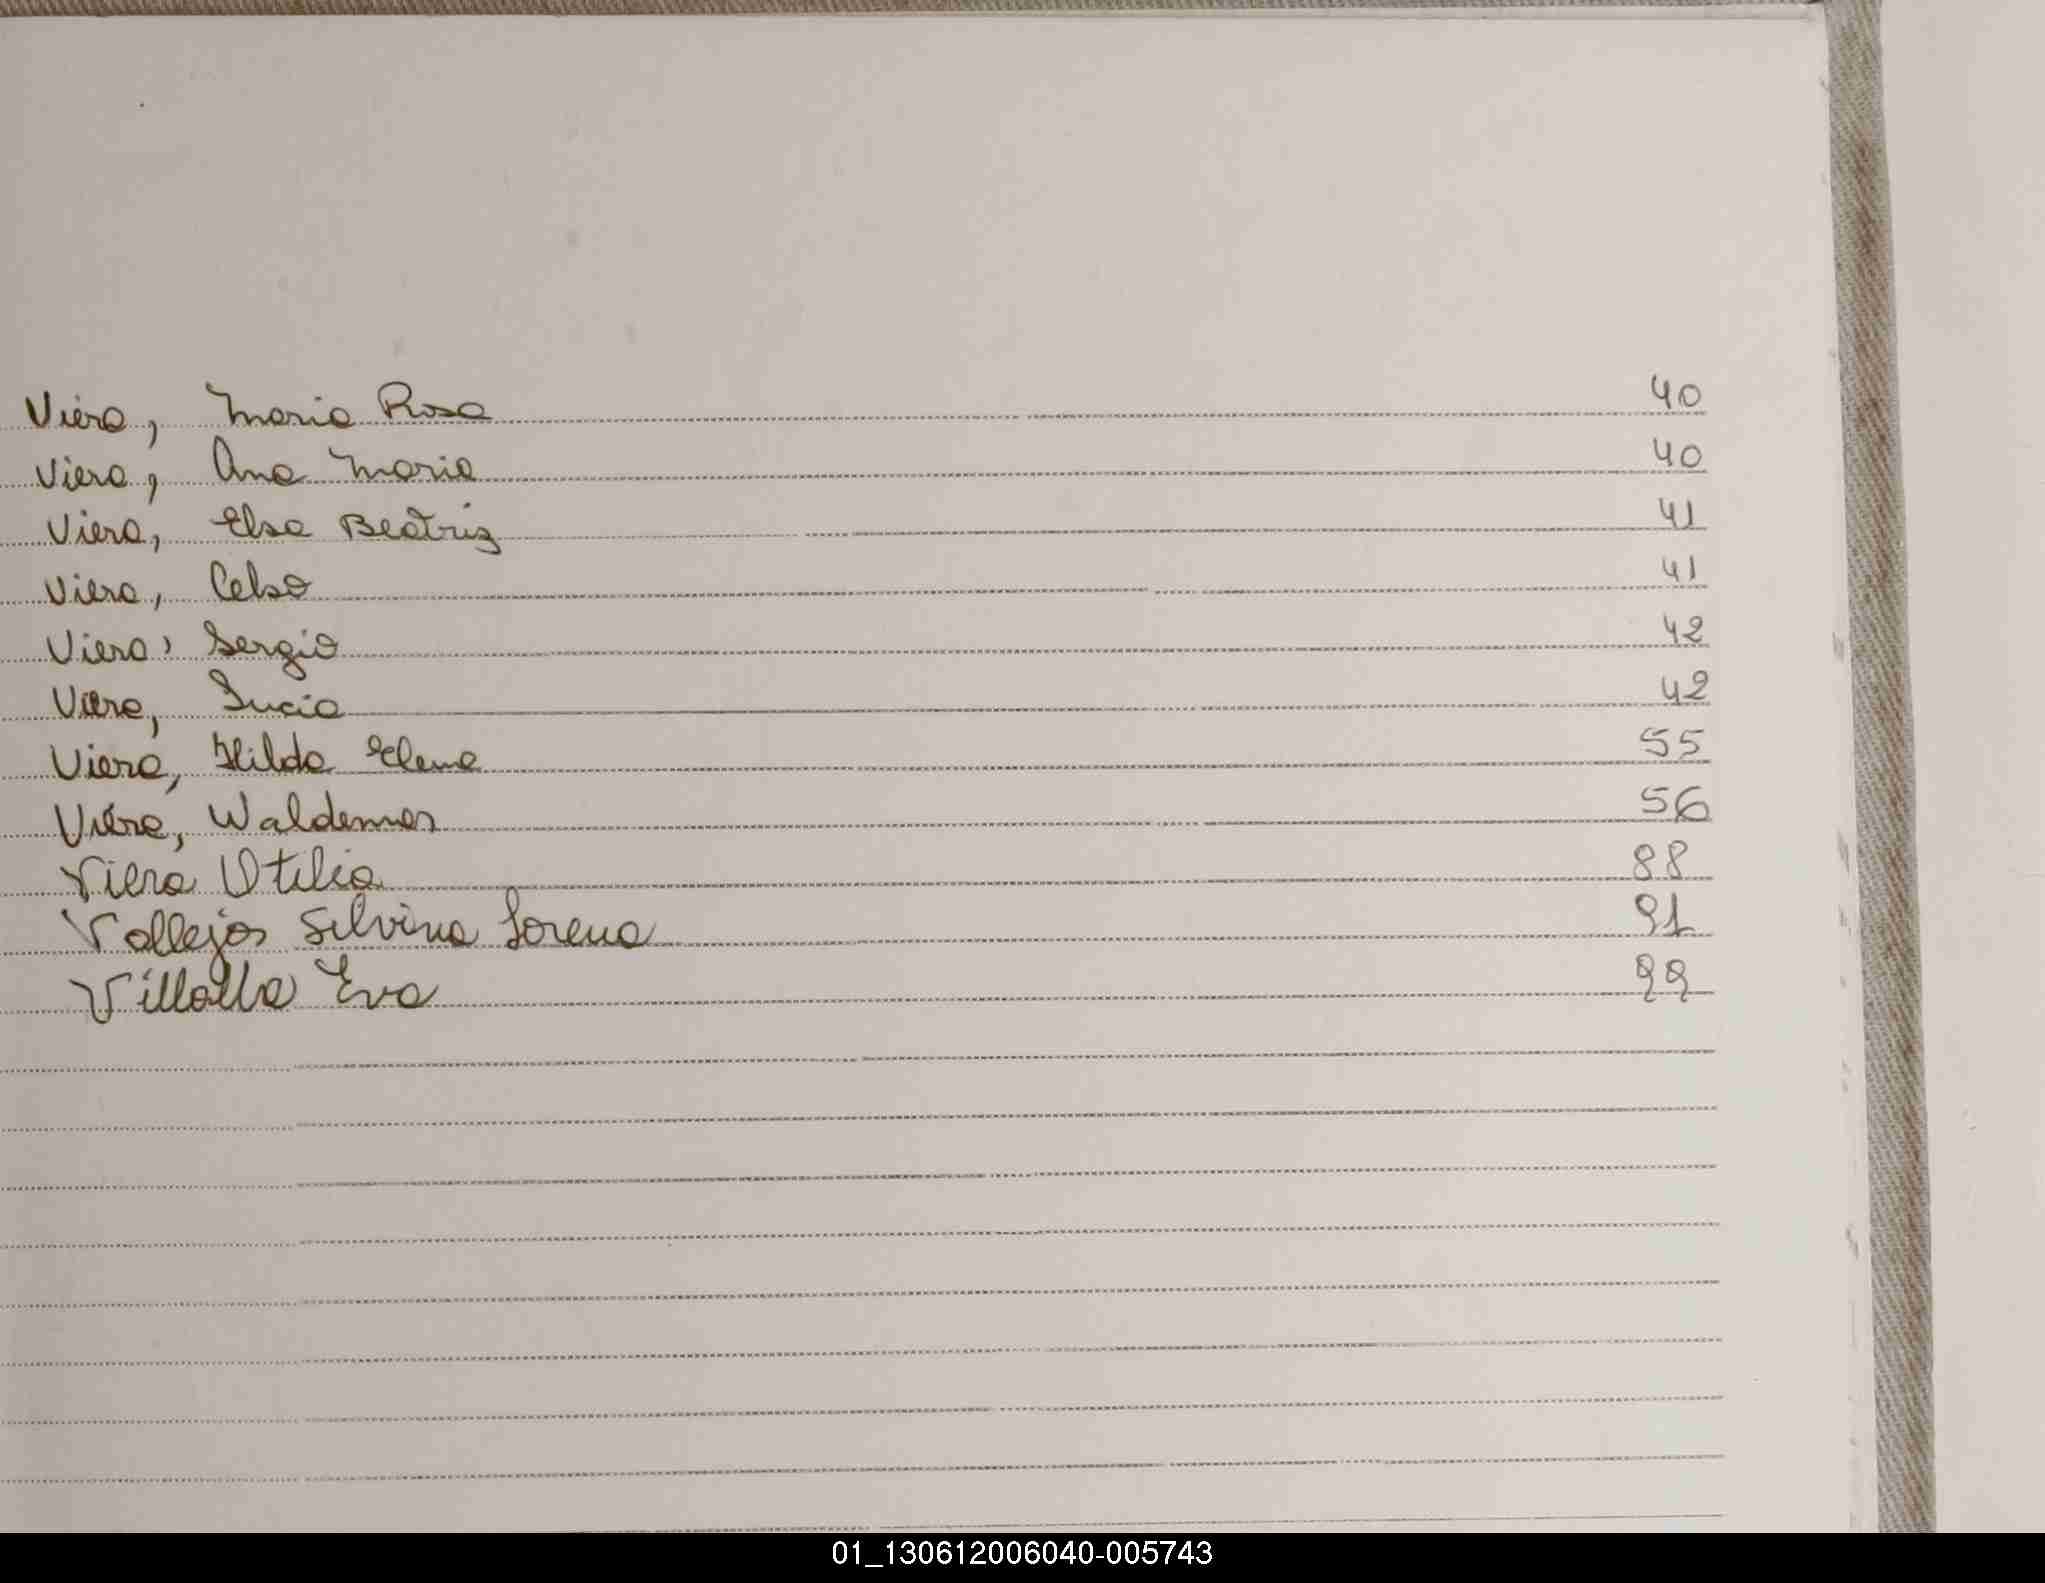 Viera, Maria Rosa 40
Viera, Ana Maria 40
Viera, Elsa Beatriz 41
Viera, Celso 41
Viera, Sergio 42
Viera, Lucia 42
Viera, Hilda Elena 55
Viera, Waldemar 56
Viera Otilia 88
Vallejos Silvina Lorena 91
Villalba Eva 99
01_130612006040-005743